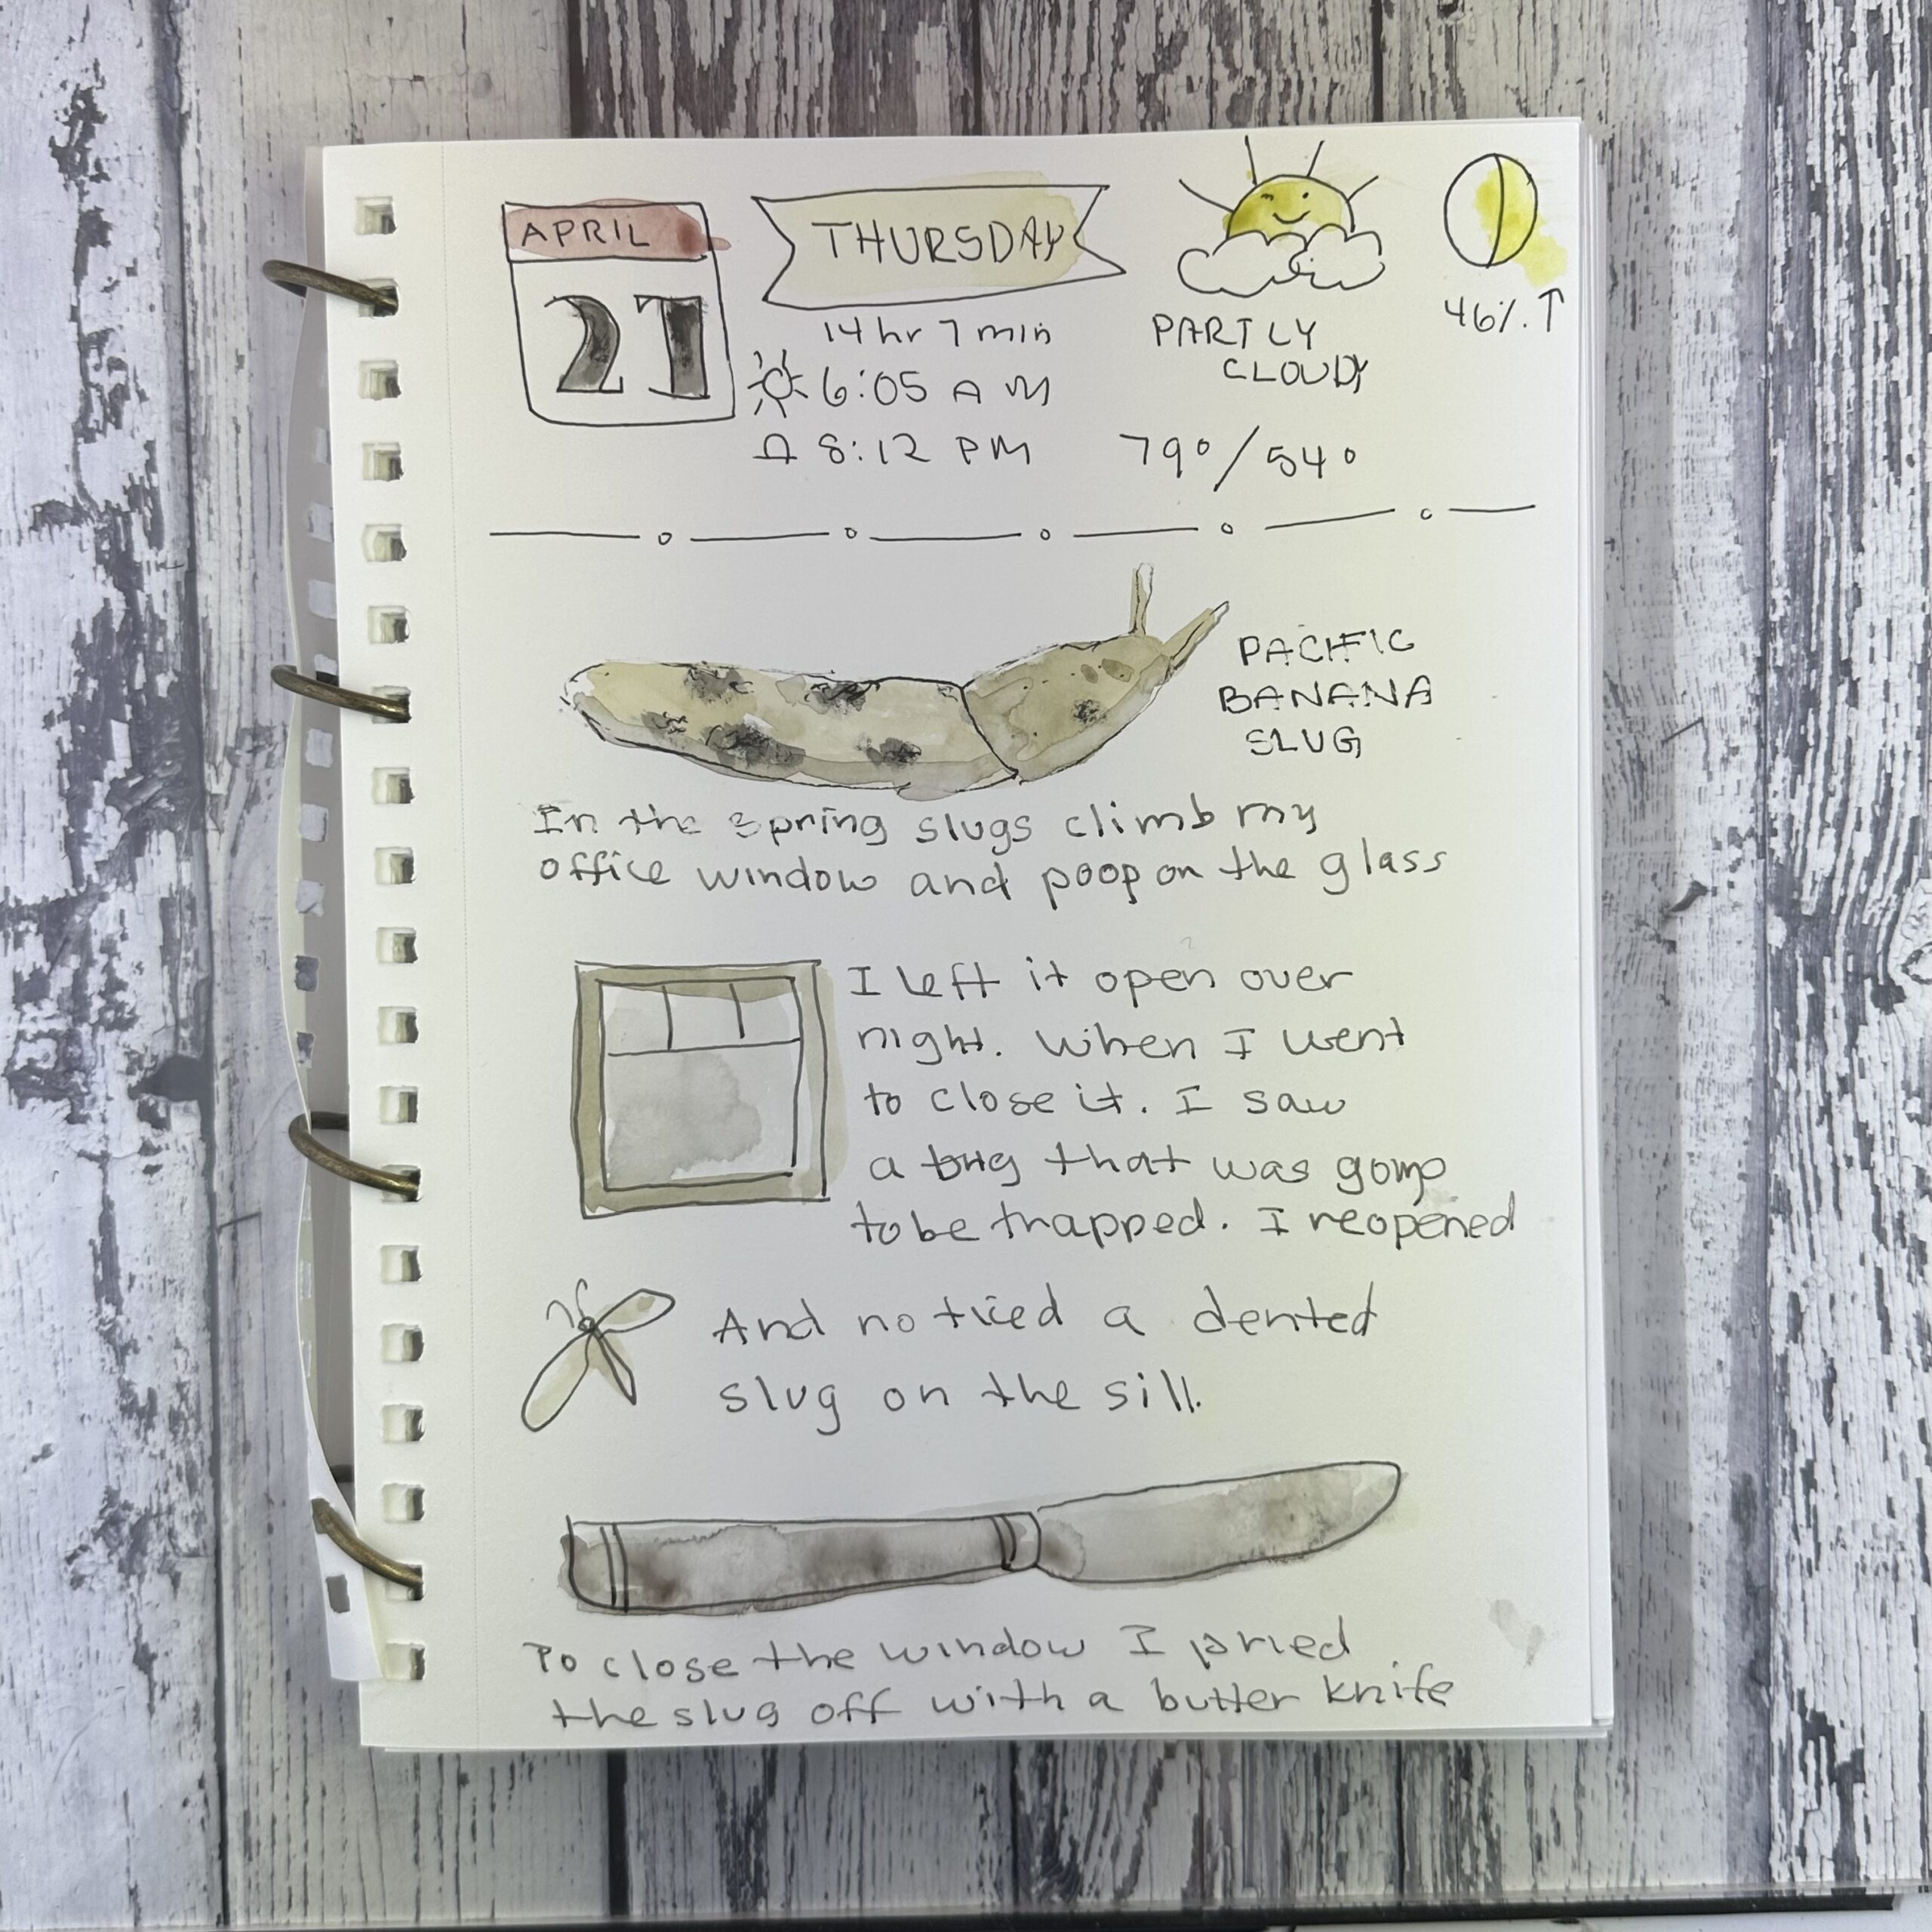 APRIL
27
THURSDAY
14 hr 7 min
6:05 AM
8:12 PM
PARTLY
CLOUDY
79°/54°
46%↑
PACIFIC
BANANA
SLUG
In the spring slugs climb my
office window and poop on the glass
I left it open over
night. When I went
to close it. I saw
a bug that was going
to be trapped. I reopened
And noticed a dented
slug on the sill.
To close the window I pried
the slug off with a butter knife